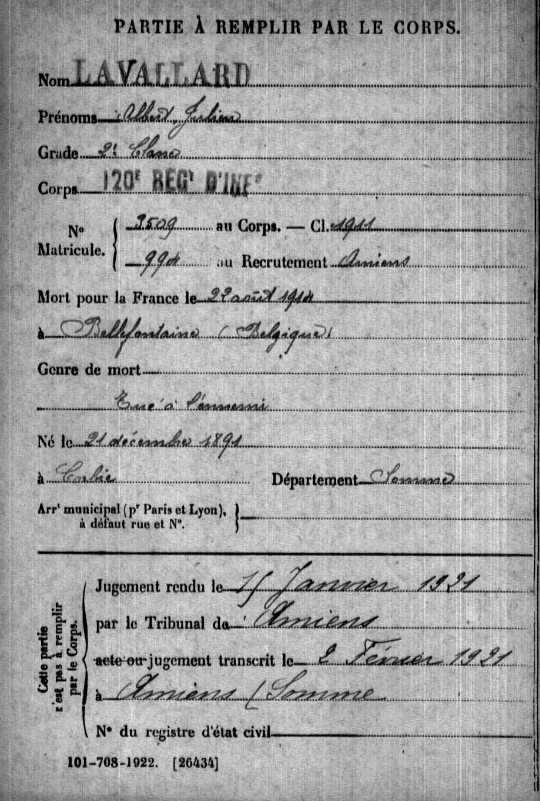 PARTIE À REMPLIR PAR LE CORPS.
Nom LAVALLARD
Prénoms Albert Julien
Grade 2e Classe
Corps 120E REGt D'INFie
No Matricule. { 3509 au Corps. — Cl. 1911
994 au Recrutement Amiens
Mort pour la France le 22 août 1914
à Bellefontaine (Belgique)
Genre de mort
Tué à l'ennemi
Né le 21 décembre 1891
à Corbie Département Somme
Arrt municipal (pr Paris et Lyon), }
à défaut rue et No.
Cette partie n'est pas à remplir par le Corps.
Jugement rendu le 15 Janvier 1921
par le Tribunal de Amiens
acte ou jugement transcrit le 2 Février 1921
à Amiens (Somme
No du registre d'état civil
101-708-1922. [26434]